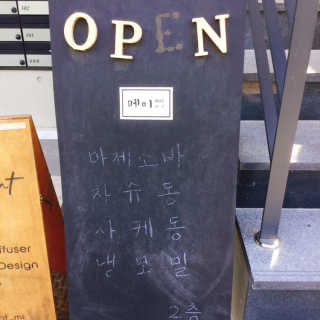 OPEN
메이
마제소바
차슈동
사케동
냉모밀
2층
nt
fuser
Design